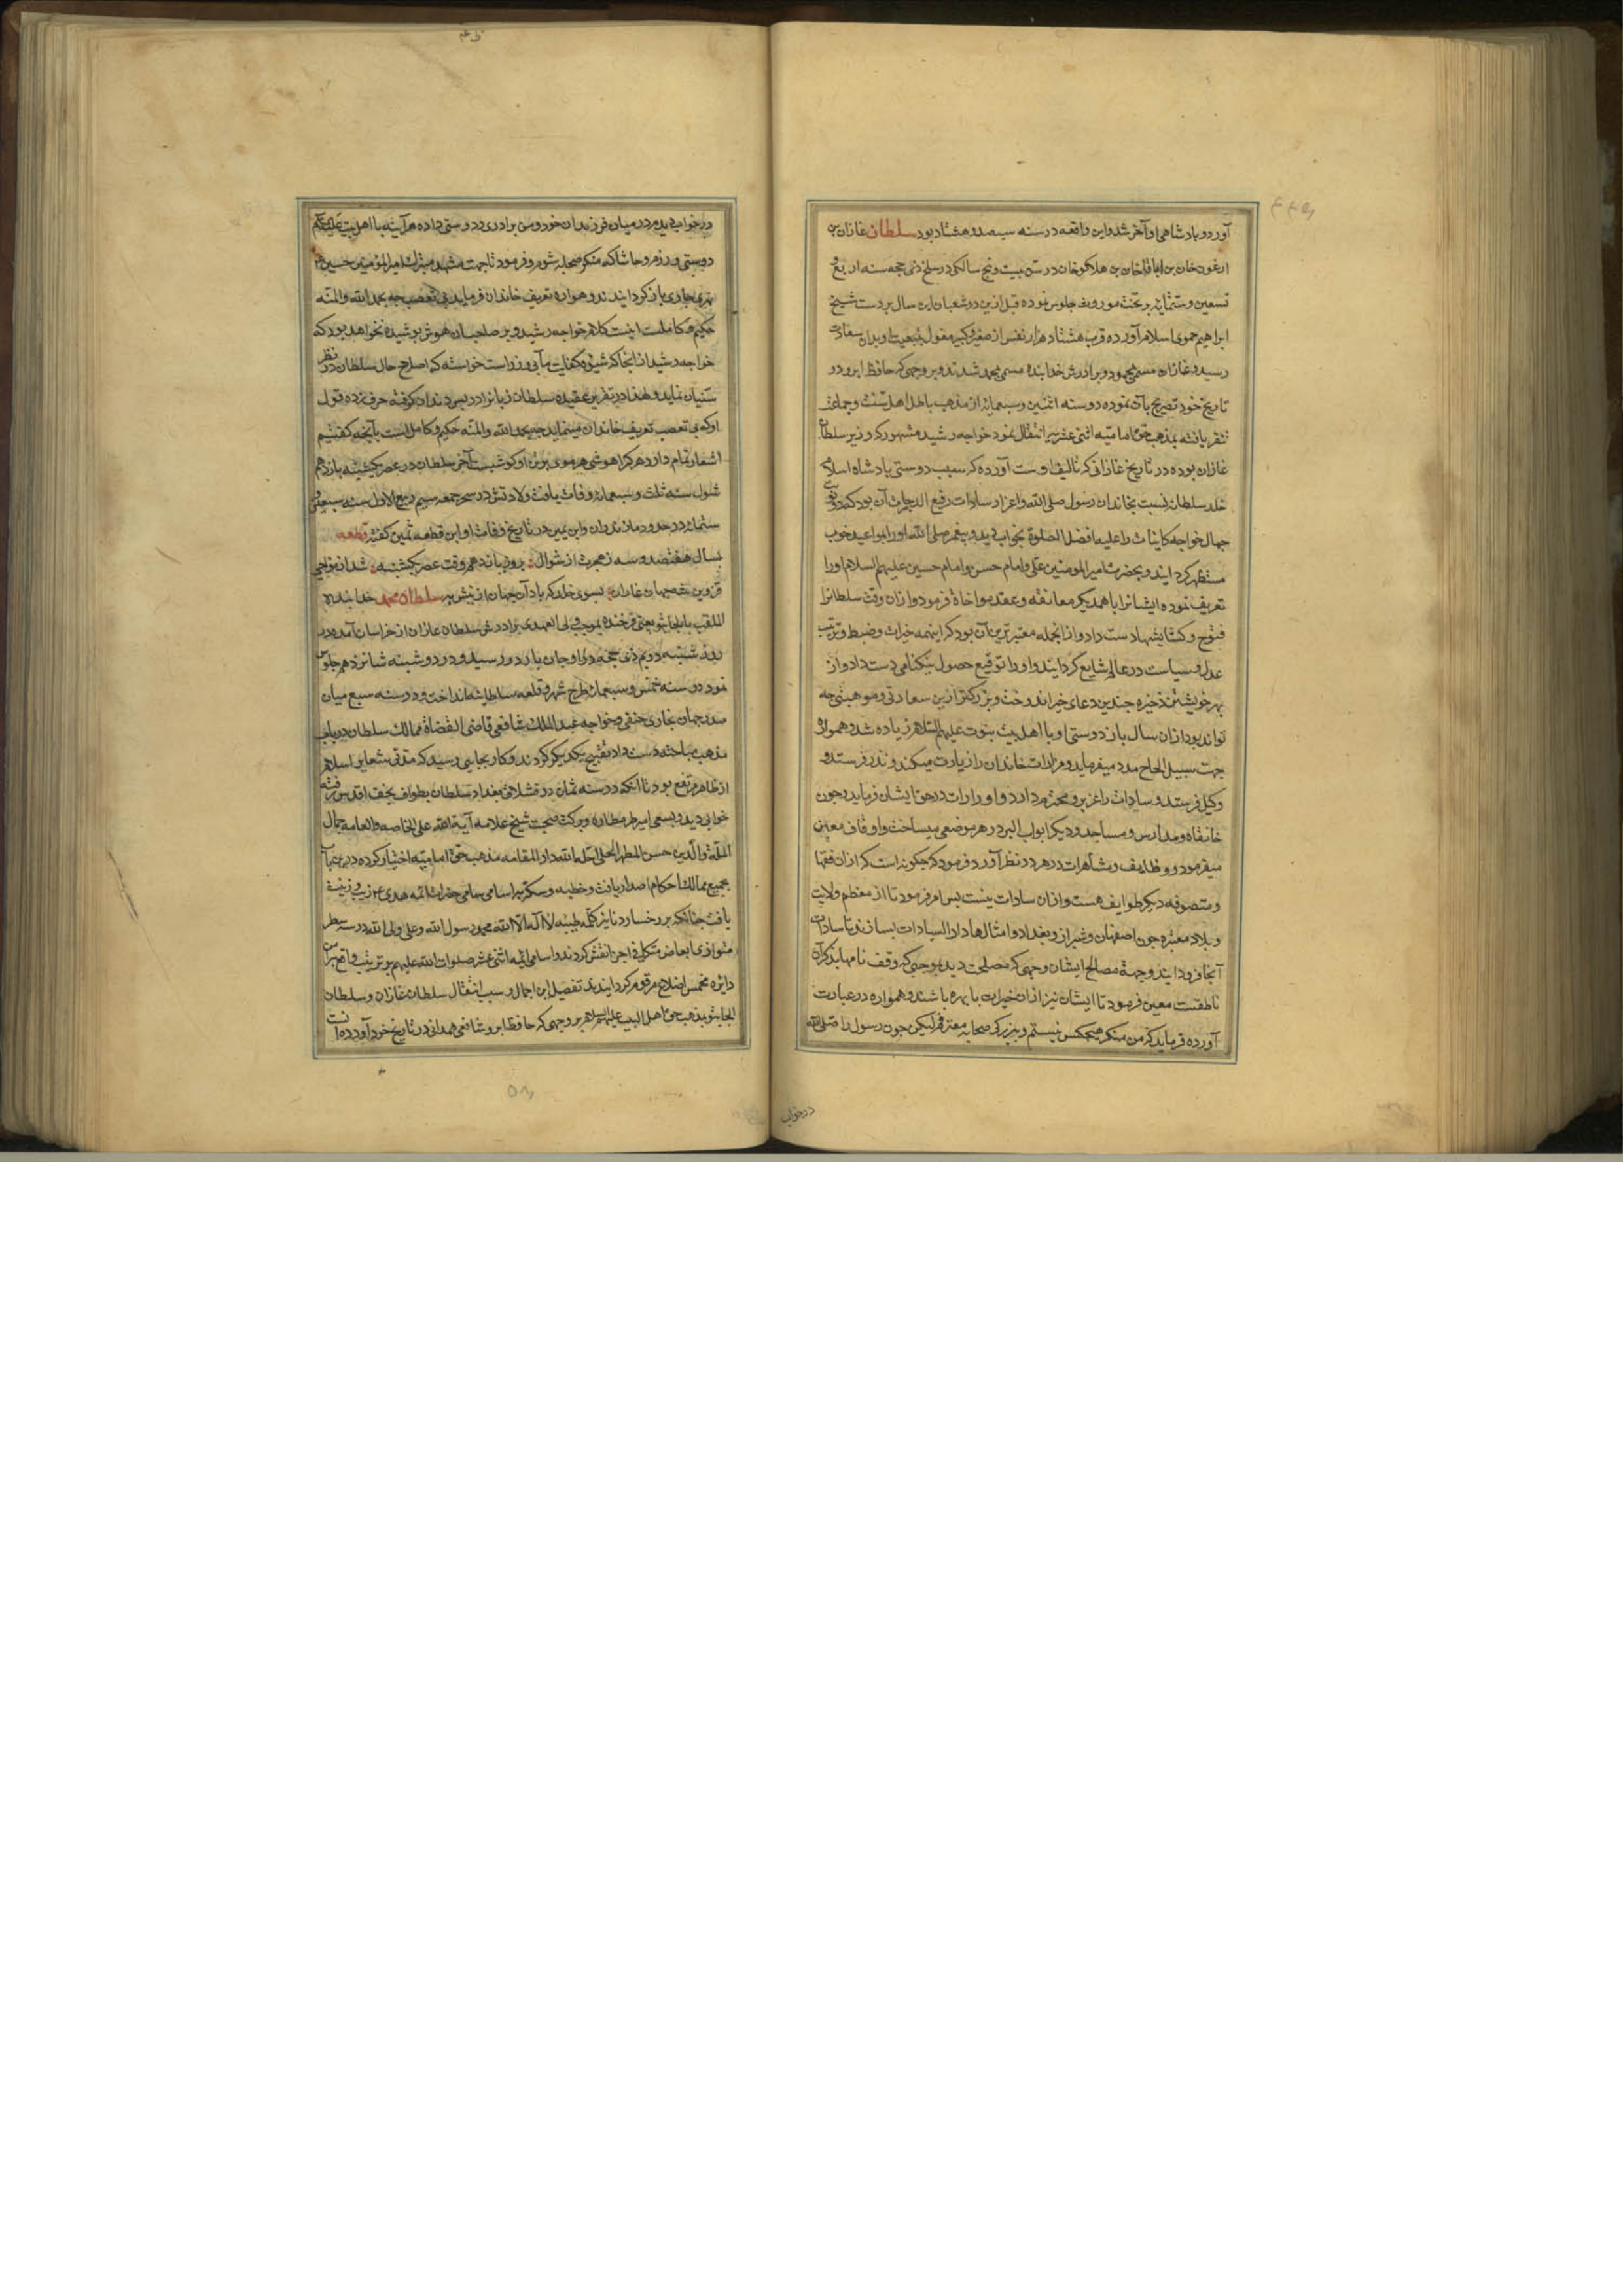 آورد و بادشاهی او آخر شد و این واقعه در سنه سیصد و هشتاد بود سلطان غازان بن
ارغون خان بن اباقا خان بن هلاکو خان در سن بیست و پنج سالکی در سلخ ذی حجه سنه اربع و
تسعین و ستمائه بر تخت موروث جلوس نموده قبل ازین در شعبان این سال بر دست شیخ
ابراهیم حموی اسلام آورده قرب هشتاد هزار نفس از صغیر و کبیر مغول بتبعیت او بدان سعادت
رسید و غازان مسمی بمحمود و برادرش خدابنده مسمی بمحمد شدند و بر وجهی که حافظ ابرو در
تاریخ خود تصریح بآن نموده در سنه اثنین و سبعمائه از مذهب باطل اهل سنت و جماعت
نفر یافته بمذهب حق امامیه اثنی عشریه انتقال نمود خواجه رشید مشهور که وزیر سلطان
غازان بوده در تاریخ غازانی که تالیف اوست آورده که سبب دوستی بادشاه اسلام
خلد سلطانه نسبت بخاندان رسول صلی الله و اعزاز سادات رفیع الدرجات آن بود که دو نوبت
جمال خواجه کاینات را علیه افضل الصلوة بخواب دید و پیغمبر صلی الله او را بمواعید خوب
مستظهر کردانید و بحضرت امیر المومنین علی و امام حسن و امام حسین علیهم السلام او را
تعریف نموده ایشانرا با همدیکر معانقه و عقد مواخاة فرمود و ازان وقت سلطانرا
فتوح و کشایشها دست داد و از انجمله معتبرترین آن بود که اینهمه خیرات و ضبط و ترتیب
عدل و سیاست در عالم شایع کردانید و او را توفیع حصول نیکنامی دست داد و از
بهر خویشتن ذخیره چندین دعای خیر اندوخت و بزرکتر ازین سعادتی و موهبتی چه
تواند بود ازان سال باز دوستی او با اهل بیت نبوت علیهم السلام زیاده شد و همواره
جهت سبیل الحاج مدد میفرماید و مزارات خاندان را زیارت میکند و نذر فرستد و
وکیل فرستد و سادات را عزیز و محترم دارد و ادرارات در حق ایشان فرماید و چون
خانقاه و مدارس و مساجد و دیکر ابواب البر در هر موضعی میساخت و اوقاف معین
میفرمود و وظایف و مشاهرات در هر در نظر آورد فرمود که چکونه است که ازان فقها
و متصوفه و دیکر طوایف هست و ازان سادات نیست پس امر فرمود تا از معظم ولایت
و بلاد معتبره چون اصفهان و شیراز و بغداد و امثالها دار السیادات بسازند تا سادات
آنجا فرود آیند و جهة مصالح ایشان وجهی که مصلحت دید بموجبی که وقف نامها بذکر آن
ناطقست معین فرمود تا ایشان نیز ازان خیرات با بهره باشند و همواره در عبارت
آورده فرماید که من منکر هیچکس نیستم و ببزرکی صحابه معترفم لیکن چون رسول را صلی الله
درخواب
در خواب دیدم در میان فرزندان خود و من برادری و دوستی داده هر آینه با اهل بیت علیهم السلم
دوستی می ورزم و حاشا که منکر صحابه شوم و فرمود تا جهت مشهد متبرک امیر المؤمنین حسین
نهری جاری باز کردانیدند و همواره تعریف خاندان فرماید بی تعصب چه بحمد الله و المنه
حکیم و کاملست اینست کلام خواجه رشید و بر صاحبان هوش پوشیده نخواهد بود که
خواجه رشید از آنجا که شیوه کفایت مآبی وزراست خواسته که اصلاح حال سلطان در نظر
سنیان نماید و لهذا در تقریر عقیده سلطان زبانرا در پس دندان کرفته حرف زده و قول
او که بی تعصب تعریف خاندان مینماید چه بحمد الله و المنه حکیم و کامل است بآنچه کفتیم
اشعار تمام دارد هر کرا هوشی هر موی بر تن او کوشیست آخر سلطان در عصر یکشنبه یازدهم
شوال سنه ثلث و سبعمائه وفات یافت ولادتش در سحر جمعه سیم ربیع الاول سنه سبعین و
ستمائه در حدود مازندران و ابن یمین در تاریخ وفات او این قطعه ثمین کفته قطعه
بسال هفتصد و سه ز هجرت از شوال بروز یازدهم وقت عصر یکشنبه شد از نواحی
قزوین شه جهان غازان بسوی خلد که باد آن جهان ازینش به سلطان محمد خدابنده
الملقب بالجایتو یعنی فرخنده بموجب ولی العهدی برادرش سلطان غازان از خراسان آمده در
روز شنبه دویم ذی حجه در اوجان باردو رسید و در دوشنبه شانزدهم جلوس
نمود در سنه خمس و سبعمائه طرح شهر و قلعه سلطانیه انداخت و در سنه سبع میان
صدر جهان بخاری حنفی و خواجه عبد الملک شافعی قاضی القضاة ممالک سلطان در باب
مذهب مباحثه دست داد تقبیح یکدیکر کردند و کار بجایی رسید که مدتی شعایر اسلام
از ظاهر مرتفع بود تا آنکه در سنه ثمان در قشلاق بغداد سلطان بطواف نجف اقدس رفته
خوابی دید و بسعی امیر طرمطار و برکت صحبت شیخ علامه آیة الله علی الخاصه و العامه جمال
الملة و الدین حسن المطهر الحلی احله الله دار المقامه مذهب حق امامیه اختیار کرده درین باب
بجمیع ممالک احکام اصدار یافت و خطبه و سکه باسامی سامی حضرات ائمه هدی ع زیب و زینت
یافت چنانکه بر رخسار دنانیر کلمه طیبه لا اله الا الله محمد رسول الله و علی ولی الله در سه سطر
متوازی نقش کردند و اسامی ائمه اثنی عشر صلوات الله علیهم بترتیب واقع بر آن
دایره مخمس اضلاع مرقوم کردانیدند تفصیل این اجمال و سبب انتقال سلطان غازان و سلطان
الجایتو بمذهب حق اهل البیت علیهم السلام بر وجهی که حافظ ابرو شافعی همدانی در تاریخ خود آورده آنست